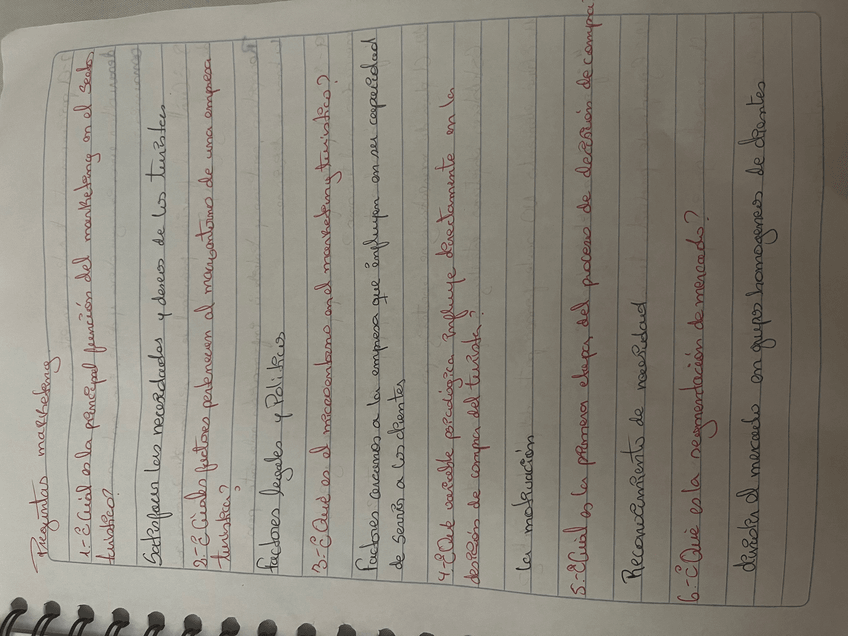 Preguntas marketing
1.- ¿Cual es la principal función del marketing en el sector
turístico?
Satisfacer las necesidades y deseos de los turistas
2.- ¿Cuales factores pertenecen al macroentorno de una empresa
turística?
Factores legales y Politicos
3.- ¿Que es el microentorno en el marketing turístico?
Factores cercanos a la empresa que influyen en ser capacidad
de servir a los clientes
4.- ¿Que variable psicologica influye directamente en la
desición de compra del turista?
la motivación
5.- ¿Cual es la primera etapa del proceso de decisión de compra
Reconocimiento de necesidad
6.- ¿Que es la segmentación de mercado?
dividir el mercado en grupos homogeneos de clientes